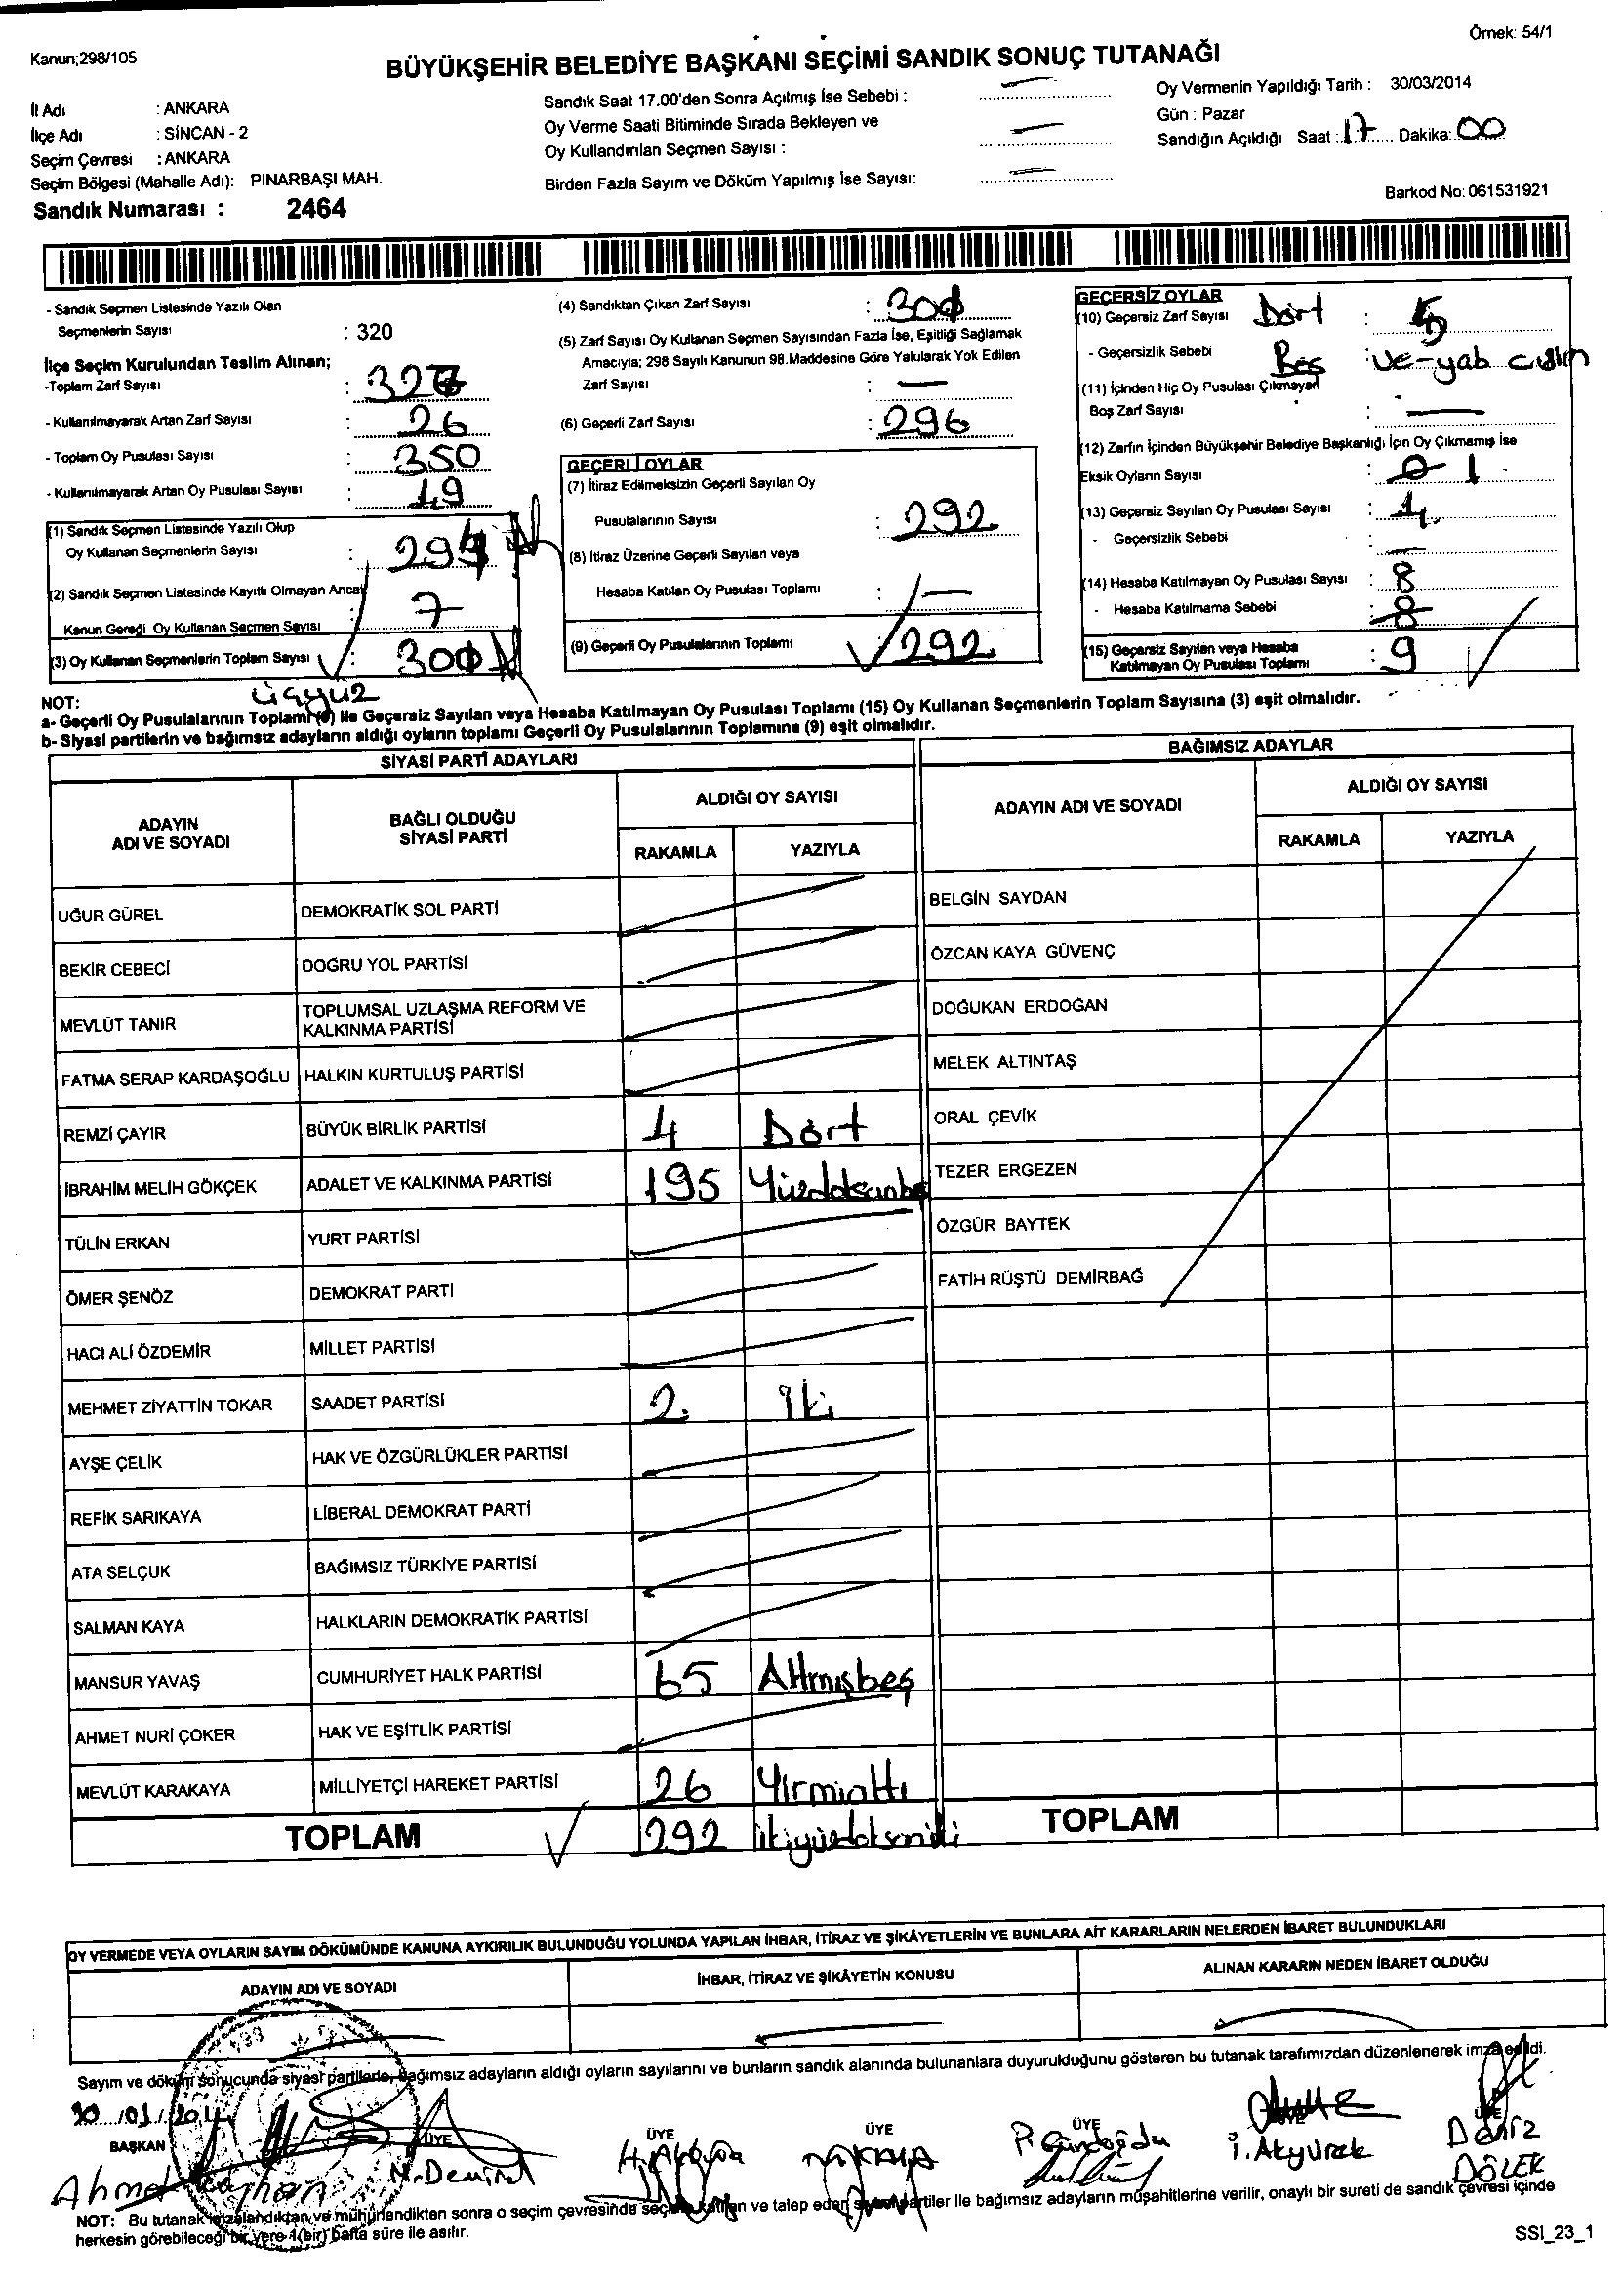 Kanun;298/105
Örnek: 54/1
BÜYÜKŞEHİR BELEDİYE BAŞKANI SEÇİMİ SANDIK SONUÇ TUTANAĞI
İl Adı : ANKARA
İlçe Adı : SİNCAN - 2
Seçim Çevresi : ANKARA
Seçim Bölgesi (Mahalle Adı): PINARBAŞI MAH.
Sandık Numarası : 2464
Sandık Saat 17.00'den Sonra Açılmış İse Sebebi :
Oy Verme Saati Bitiminde Sırada Bekleyen ve
Oy Kullandırılan Seçmen Sayısı :
Birden Fazla Sayım ve Döküm Yapılmış İse Sayısı:
Oy Vermenin Yapıldığı Tarih : 30/03/2014
Gün : Pazar
Sandığın Açıldığı Saat : 17 Dakika: 00
Barkod No: 061531921
- Sandık Seçmen Listesinde Yazılı Olan
Seçmenlerin Sayısı : 320
İlçe Seçim Kurulundan Teslim Alınan;
-Toplam Zarf Sayısı :
- Kullanılmayarak Artan Zarf Sayısı : 26
- Toplam Oy Pusulası Sayısı : 350
- Kullanılmayarak Artan Oy Pusulası Sayısı : 49
(1) Sandık Seçmen Listesinde Yazılı Olup
Oy Kullanan Seçmenlerin Sayısı :
(2) Sandık Seçmen Listesinde Kayıtlı Olmayan Ancak
Kanun Gereği Oy Kullanan Seçmen Sayısı : 7
(3) Oy Kullanan Seçmenlerin Toplam Sayısı :
üçyüz
(4) Sandıktan Çıkan Zarf Sayısı :
(5) Zarf Sayısı Oy Kullanan Seçmen Sayısından Fazla İse, Eşitliği Sağlamak
Amacıyla; 298 Sayılı Kanunun 98.Maddesine Göre Yakılarak Yok Edilen
Zarf Sayısı : —
(6) Geçerli Zarf Sayısı : 296
GEÇERLİ OYLAR
(7) İtiraz Edilmeksizin Geçerli Sayılan Oy
Pusulalarının Sayısı : 292
(8) İtiraz Üzerine Geçerli Sayılan veya
Hesaba Katılan Oy Pusulası Toplamı : —
(9) Geçerli Oy Pusulalarının Toplamı : 292
GEÇERSİZ OYLAR
(10) Geçersiz Zarf Sayısı Dört : 5
- Geçersizlik Sebebi Beş :
(11) İçinden Hiç Oy Pusulası Çıkmayan
Boş Zarf Sayısı : —
(12) Zarfın İçinden Büyükşehir Belediye Başkanlığı İçin Oy Çıkmamış İse
Eksik Oyların Sayısı : 1
(13) Geçersiz Sayılan Oy Pusulası Sayısı : 1
- Geçersizlik Sebebi : —
(14) Hesaba Katılmayan Oy Pusulası Sayısı : 8
- Hesaba Katılmama Sebebi : 8
(15) Geçersiz Sayılan veya Hesaba
Katılmayan Oy Pusulası Toplamı : 9
NOT:
a- Geçerli Oy Pusulalarının Toplamı (9) ile Geçersiz Sayılan veya Hesaba Katılmayan Oy Pusulası Toplamı (15) Oy Kullanan Seçmenlerin Toplam Sayısına (3) eşit olmalıdır.
b- Siyasi partilerin ve bağımsız adayların aldığı oyların toplamı Geçerli Oy Pusulalarının Toplamına (9) eşit olmalıdır.
SİYASİ PARTİ ADAYLARI
ADAYIN ADI VE SOYADI
BAĞLI OLDUĞU SİYASİ PARTİ
ALDIĞI OY SAYISI
RAKAMLA YAZIYLA
UĞUR GÜREL DEMOKRATİK SOL PARTİ
BEKİR CEBECİ DOĞRU YOL PARTİSİ
MEVLÜT TANIR TOPLUMSAL UZLAŞMA REFORM VE
KALKINMA PARTİSİ
FATMA SERAP KARDAŞOĞLU HALKIN KURTULUŞ PARTİSİ
REMZİ ÇAYIR BÜYÜK BİRLİK PARTİSİ 4 Dört
İBRAHİM MELİH GÖKÇEK ADALET VE KALKINMA PARTİSİ 195 Yüzdoksanbeş
TÜLİN ERKAN YURT PARTİSİ
ÖMER ŞENÖZ DEMOKRAT PARTİ
HACI ALİ ÖZDEMİR MİLLET PARTİSİ
MEHMET ZİYATTİN TOKAR SAADET PARTİSİ 2 İki
AYŞE ÇELİK HAK VE ÖZGÜRLÜKLER PARTİSİ
REFİK SARIKAYA LİBERAL DEMOKRAT PARTİ
ATA SELÇUK BAĞIMSIZ TÜRKİYE PARTİSİ
SALMAN KAYA HALKLARIN DEMOKRATİK PARTİSİ
MANSUR YAVAŞ CUMHURİYET HALK PARTİSİ 65 Altmışbeş
AHMET NURİ ÇOKER HAK VE EŞİTLİK PARTİSİ
MEVLÜT KARAKAYA MİLLİYETÇİ HAREKET PARTİSİ 26 Yirmialtı
TOPLAM 292 İkiyüzdoksaniki
BAĞIMSIZ ADAYLAR
ADAYIN ADI VE SOYADI
ALDIĞI OY SAYISI
RAKAMLA YAZIYLA
BELGİN SAYDAN
ÖZCAN KAYA GÜVENÇ
DOĞUKAN ERDOĞAN
MELEK ALTINTAŞ
ORAL ÇEVİK
TEZER ERGEZEN
ÖZGÜR BAYTEK
FATİH RÜŞTÜ DEMİRBAĞ
TOPLAM
OY VERMEDE VEYA OYLARIN SAYIM DÖKÜMÜNDE KANUNA AYKIRILIK BULUNDUĞU YOLUNDA YAPILAN İHBAR, İTİRAZ VE ŞİKÂYETLERİN VE BUNLARA AİT KARARLARIN NELERDEN İBARET BULUNDUKLARI
ADAYIN ADI VE SOYADI
İHBAR, İTİRAZ VE ŞİKÂYETİN KONUSU
ALINAN KARARIN NEDEN İBARET OLDUĞU
Sayım ve döküm sonucunda siyasi partilerle, bağımsız adayların aldığı oyların sayılarını ve bunların sandık alanında bulunanlara duyurulduğunu gösteren bu tutanak tarafımızdan düzenlenerek imza edildi.
30/03/2014
BAŞKAN ÜYE ÜYE ÜYE ÜYE ÜYE ÜYE
Ahmet N.Demirel H.Akkaya N.KAYA P.Gündoğdu İ.Akyürek Deniz
DÖLEK
NOT: Bu tutanak imzalandıktan ve mühürlendikten sonra o seçim çevresinde seçime katılan ve talep eden siyasi partiler ile bağımsız adayların müşahitlerine verilir, onaylı bir sureti de sandık çevresi içinde
herkesin görebileceği bir yere 1(bir) hafta süre ile asılır.
SSI_23_1